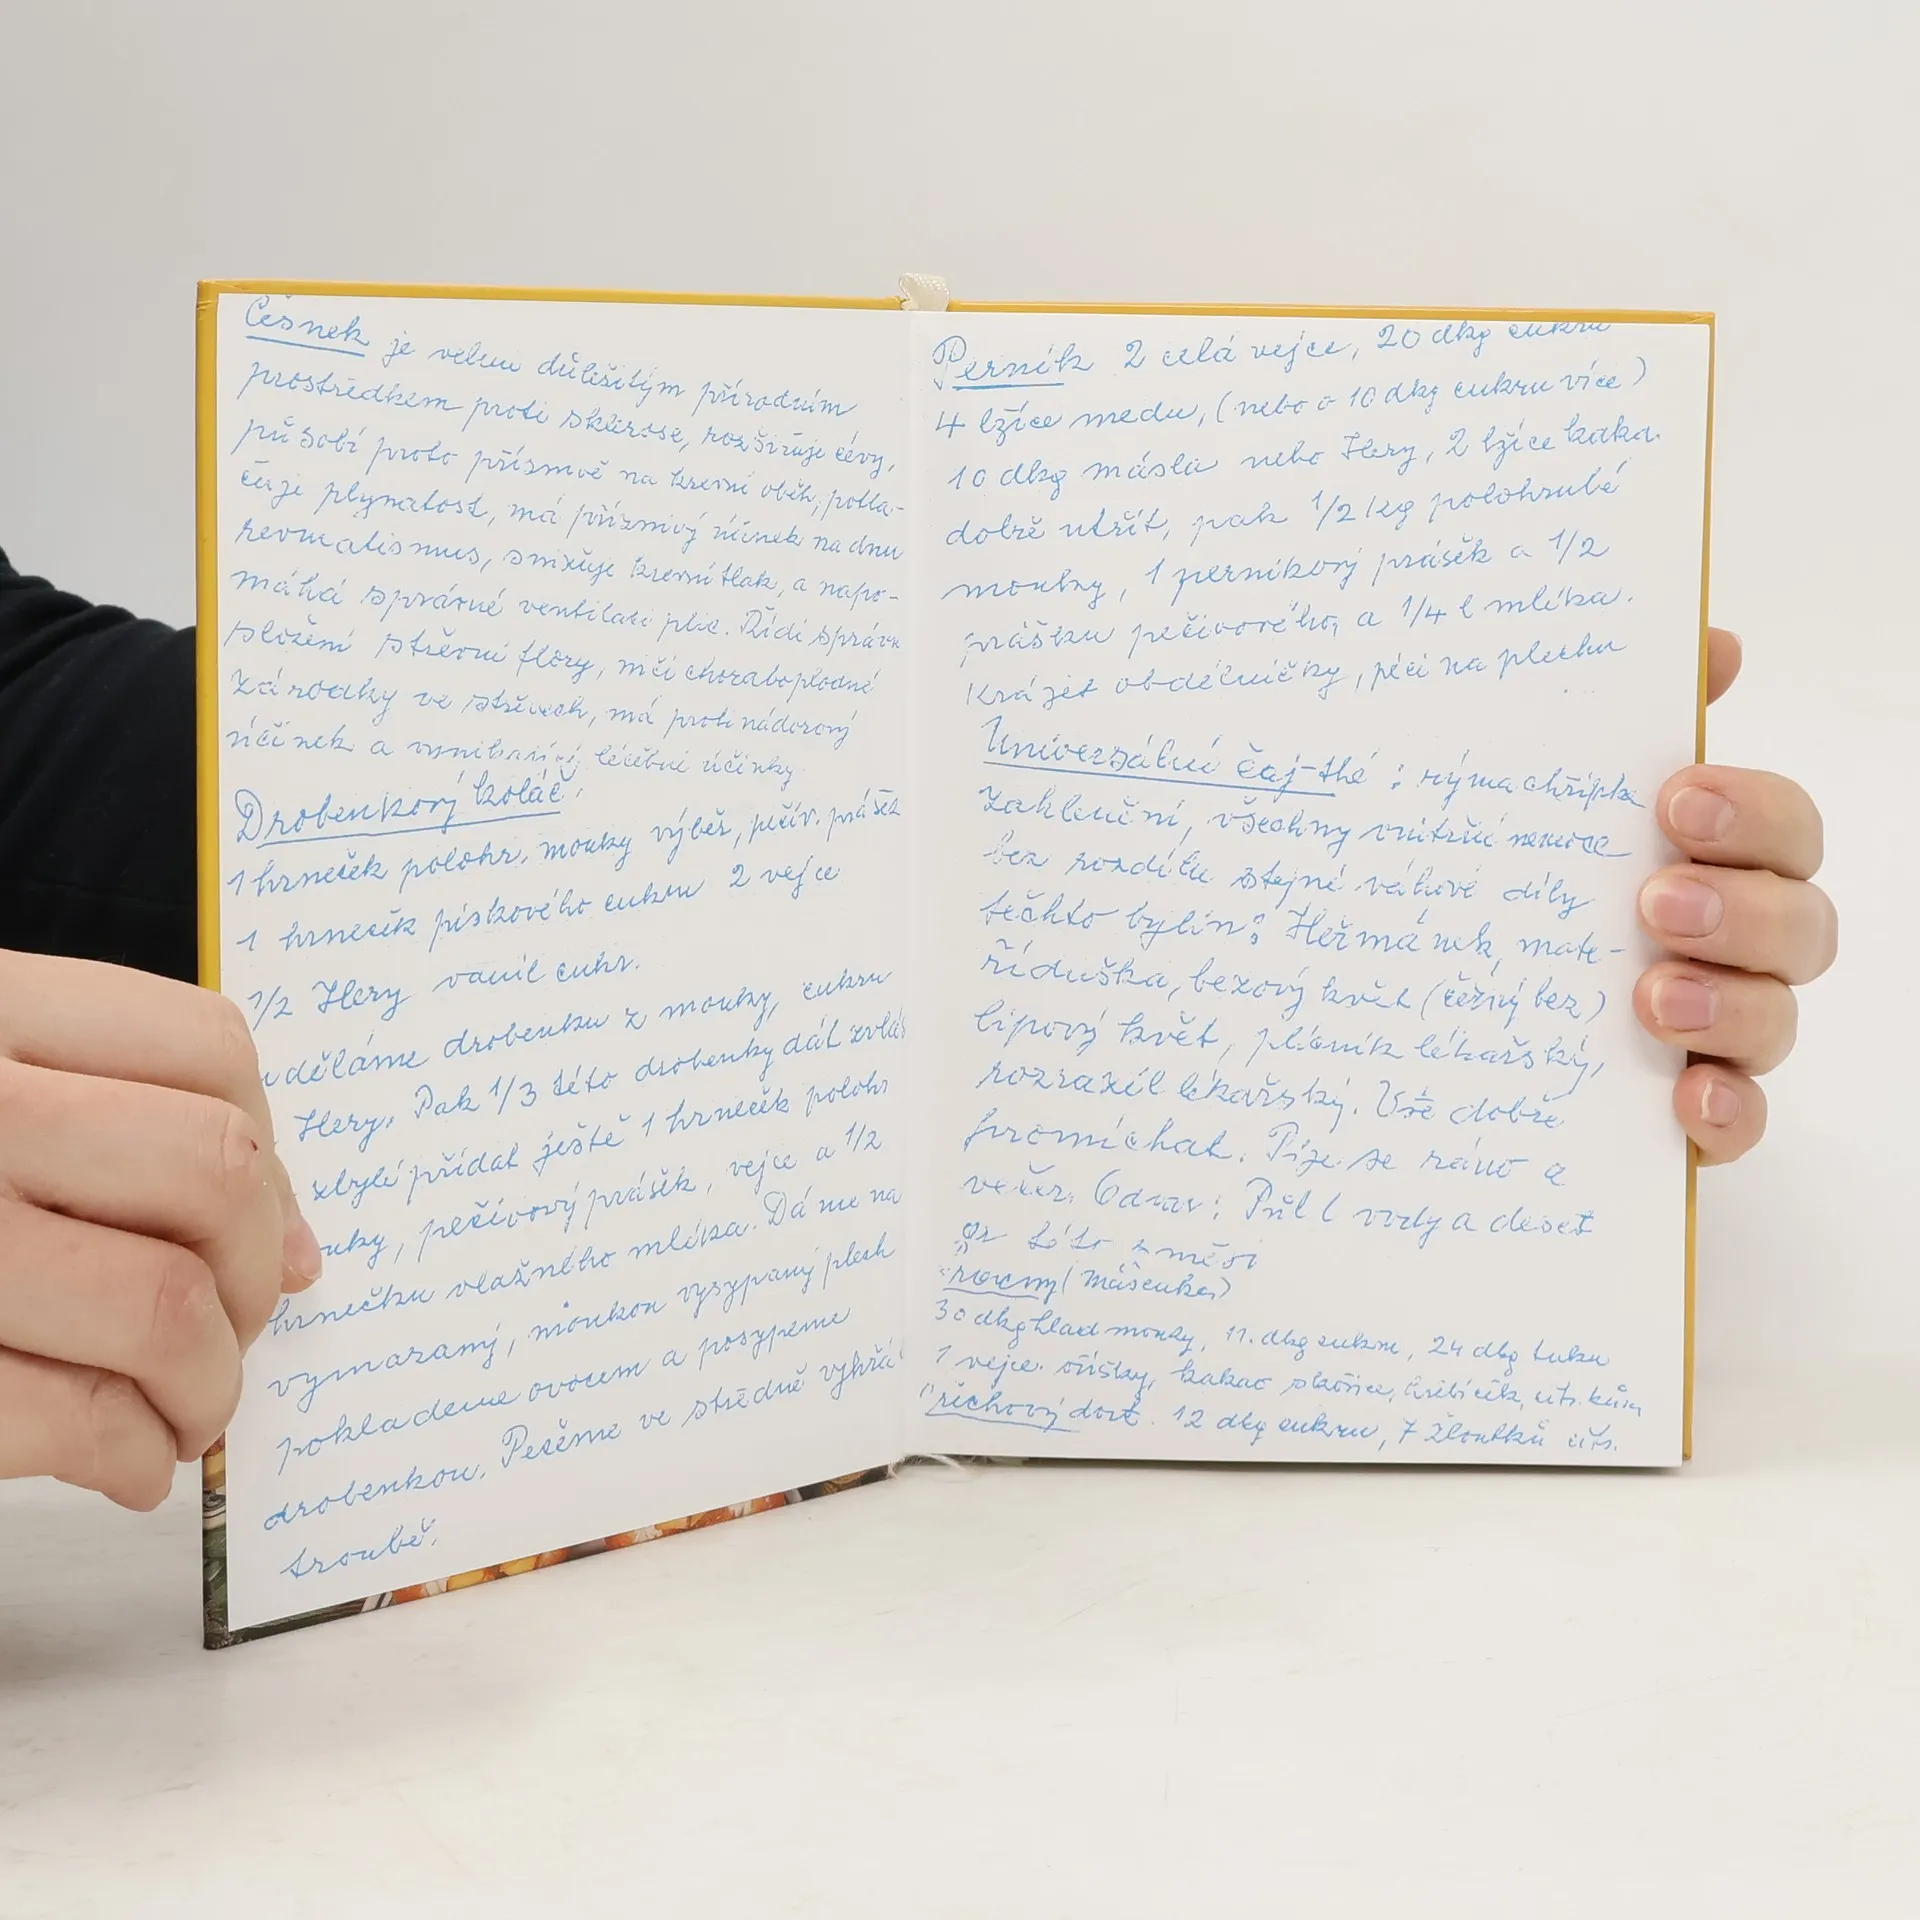 Česnek je velmi důležitým přírodním
prostředkem proti sklerose, rozšiřuje cévy,
působí proto příznivě na krevní oběh, potla-
čuje plynatost, má příznivý účinek na dnu
revmatismus, snižuje krevní tlak, a napo-
máhá správné ventilaci plic. Řídí správn
složení střevní flory, ničí choraboplodné
zárodky ve střevech, má protinádorový
účinek a vynikající léčebné účinky
Drobenkový koláč.
1 hrneček polohr. mouky výběr, pečiv. prášek
1 hrneček pískového cukru 2 vejce
1/2 Hery vanil cukr.
uděláme drobenku z mouky, cukru
Hery. Pak 1/3 této drobenky dát zvláš
zbylé přidat ještě 1 hrneček polohr
ouky, pečivový prášek, vejce a 1/2
hrnečku vlažného mléka. Dáme na
vymazaný, moukou vysypaný plech
poklademe ovocem a posypeme
drobenkou. Pečeme ve středně vyhřá
troubě.
Perník 2 celá vejce, 20 dkg cukru
4 lžíce medu, (nebo o 10 dkg cukru více)
10 dkg másla nebo Hery, 2 lžíce kaka.
dobře utřít, pak 1/2 kg polohrubé
mouky, 1 perníkový prášek a 1/2
prášku pečivového, a 1/4 l mléka.
Krájet obdélníčky, péci na plechu
Universální čaj-thé : rýma chřipka
zahlenění, všechny vnitřní nemoce
bez rozdílu stejné váhové díly
těchto bylin: Heřmánek, mate-
řídouška, bezový květ (černý bez)
lipový květ, plicník lékařský,
rozrazil lékařský. Vše dobře
promíchat. Pije se ráno a
večer. Odvar: Půl l vody a deset
gr této směsi
rovny (Mášenka)
30 dkg hlad mouky, 11. dkg cukru, 24 dkg tuku
1 vejce. oříšky, kakao skořice, hřebíček, citr. kůra
řechový dort. 12 dkg cukru, 7 žloutků